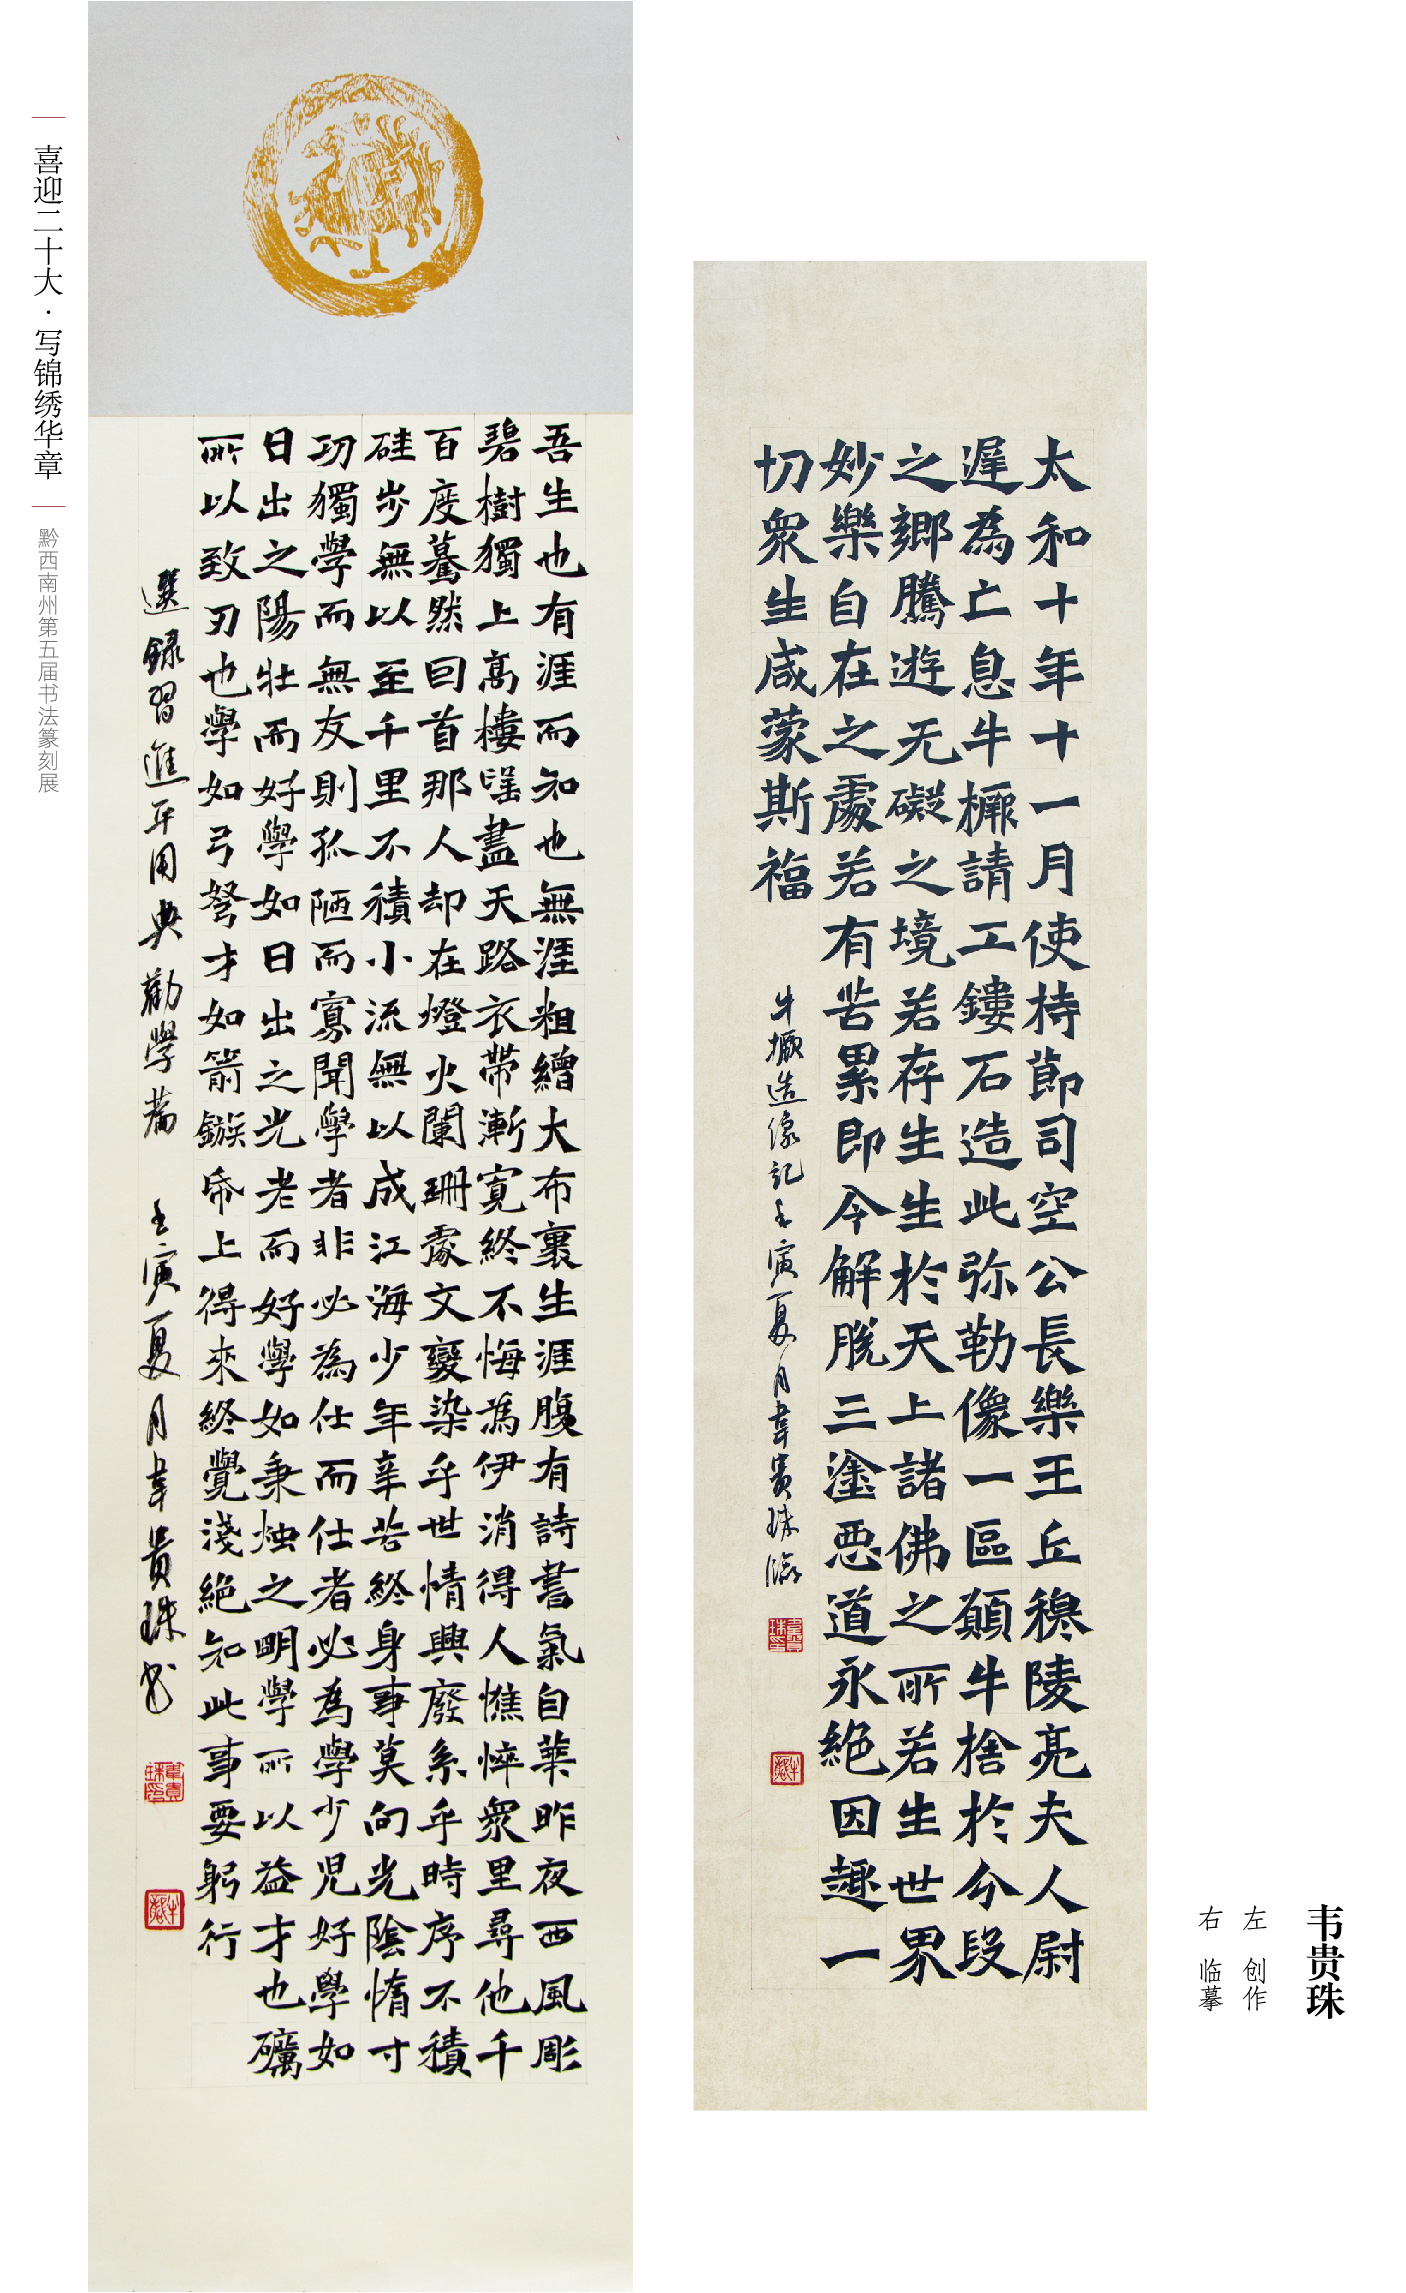 喜迎二十大·写锦绣华章
黔西南州第五届书法篆刻展
吾生也有涯而知也無涯粗繒大布裹生涯腹有詩書氣自華昨夜西風彫
碧樹獨上高樓望盡天路衣帶漸寬終不悔為伊消得人憔悴眾里尋他千
百度驀然回首那人却在燈火闌珊處文變染乎世情興廢系乎時序不積
硅步無以至千里不積小流無以成江海少年辛苦終身事莫向光陰惰寸
功獨學而無友則孤陋而寡聞學者非必為仕而仕者必為學少児好學如
日出之陽壯而好學如日出之光老而好學如秉烛之明學所以益才也礪
所以致刃也學如弓弩才如箭鏃帋上得來終覺淺絕知此事要躬行
選録習進平用典勸學篇 壬寅夏月韋貴珠书
太和十年十一月使持節司空公長樂王丘穆陵亮夫人尉
遲為亡息牛橛請工鏤石造此弥勒像一區願牛捨於分段
之鄉騰遊无礙之境若存生生於天上諸佛之所若生世界
妙樂自在之處若有苦累即令解脫三塗惡道永絕因趣一
切眾生咸蒙斯福
牛橛造像記壬寅夏月韋貴珠臨
韦贵珠
左 创作
右 临摹